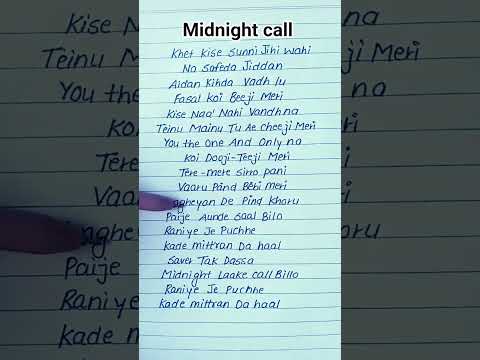 Midnight call
Khet Kise Sunni Jihi Wahi
Na Safeda Jiddan
Aidan Kihda Vadh lu
Fasal Koi Beeji Meri
Kise Naal Nahi Vandhna
Teinu Mainu Tu Ae Cheeji Meri
You the One And Only na
Koi Dooji-Teeji Meri
Tere-mere Sirro pani
Vaaru Pind Bebi meri
De Pind Kharu
Paije Aunde Saal Bilo
Raniye Je Puchhe
Kade mittran Da haal
Saver Tak Dassa
Midnight Laake call Billo
Raniye Je Puchhe
Kade mittran Da haal